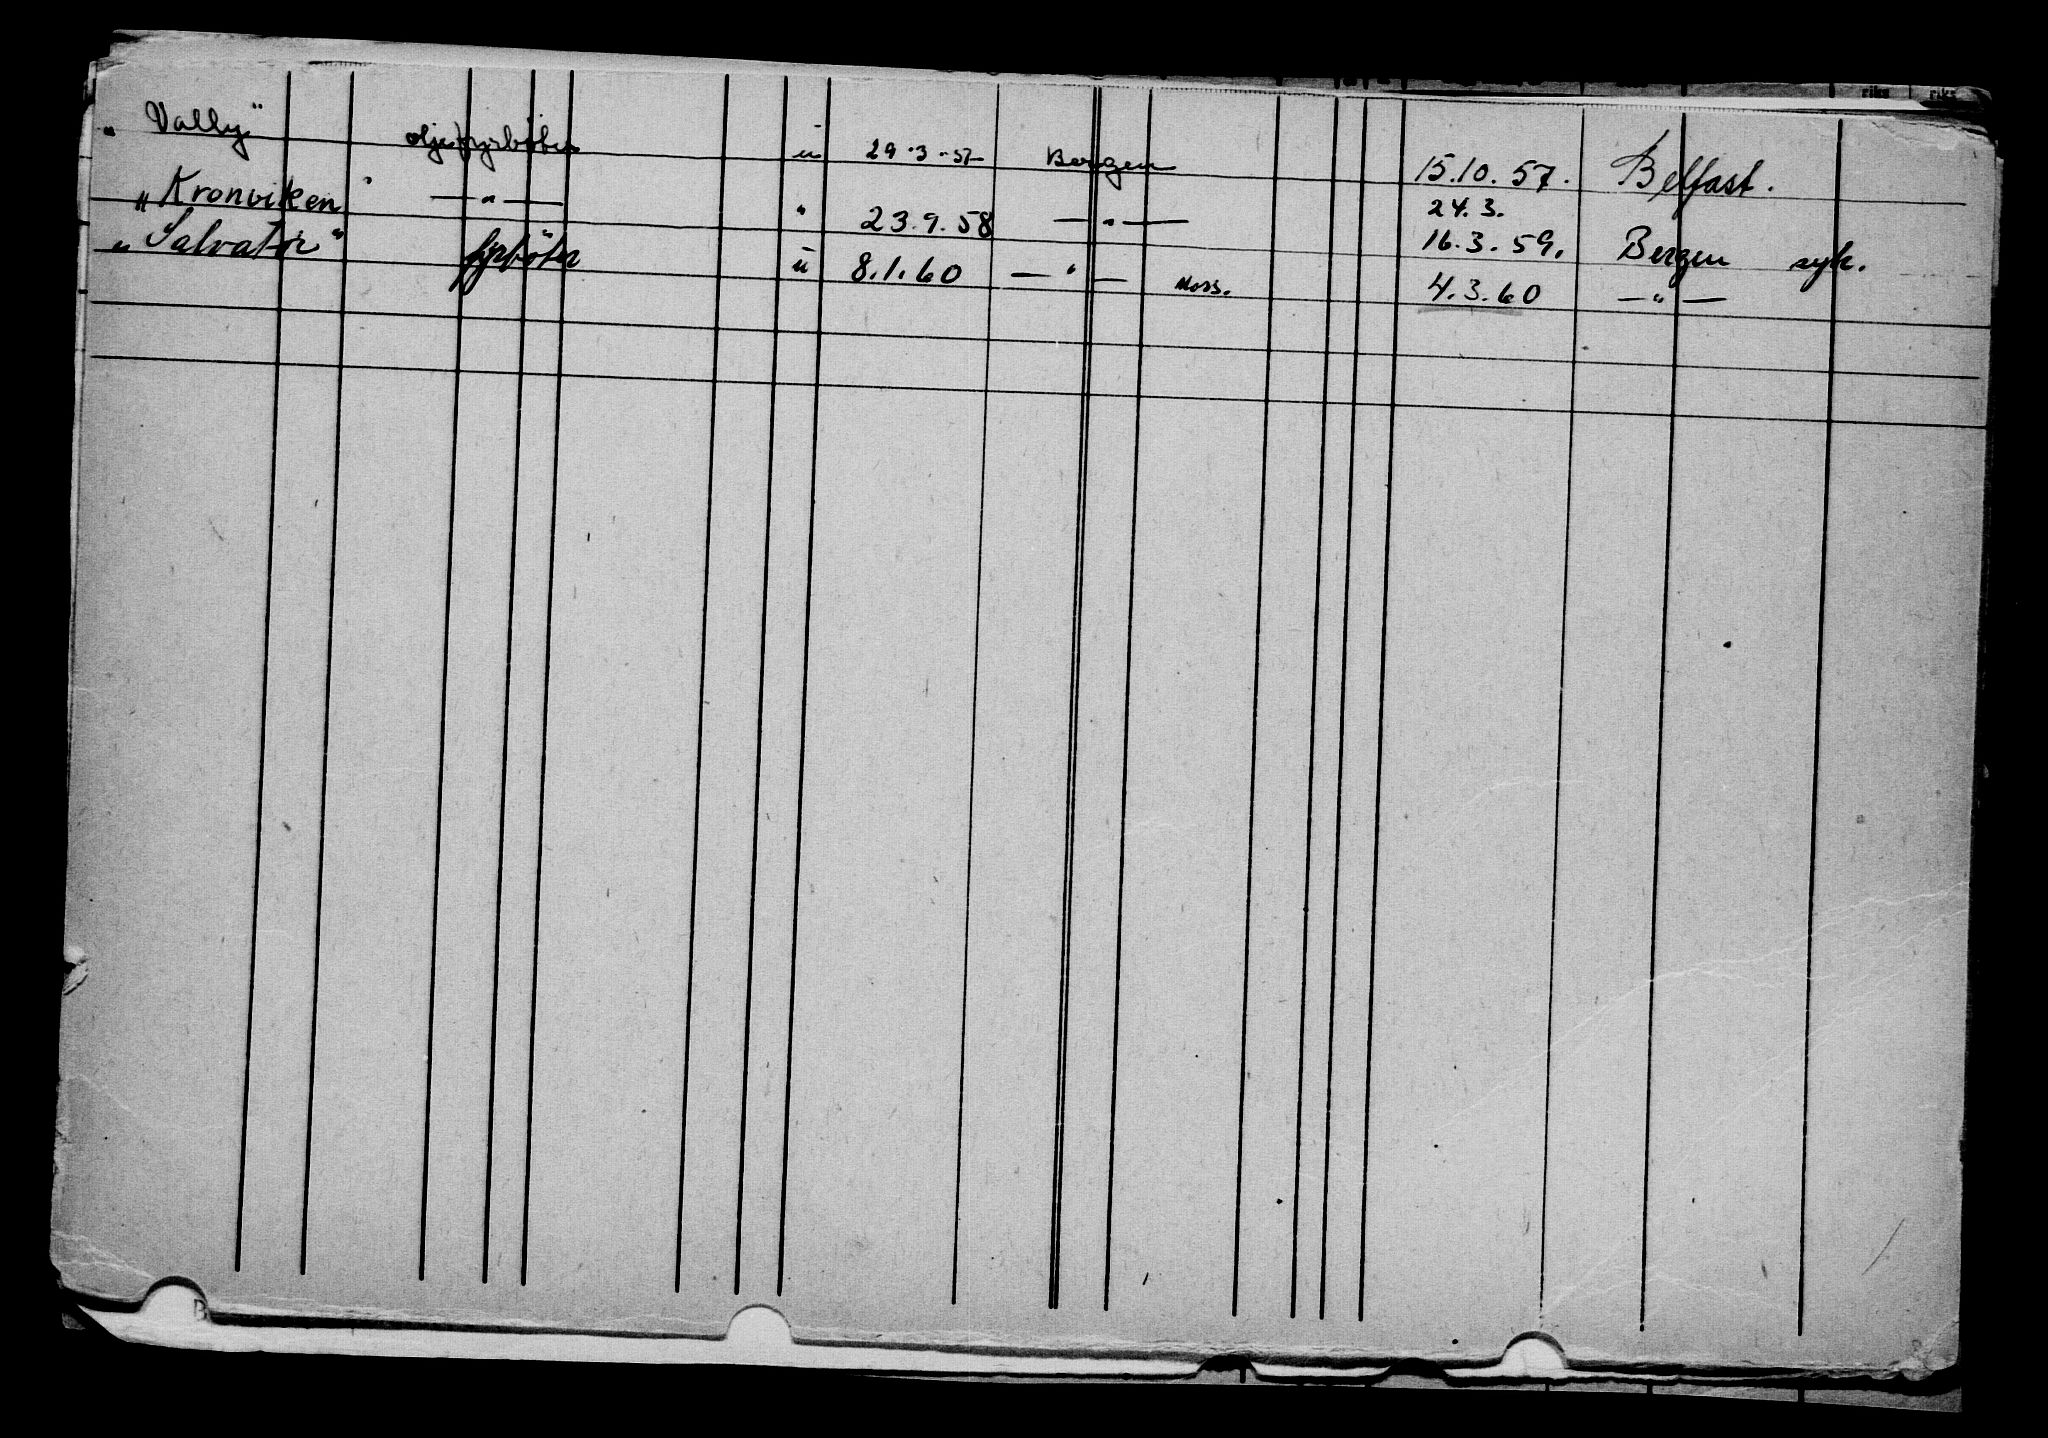 „ Vally" oljefyrbøter u 29.3.57 Bergen 15.10.57. Belfast.
„ Kronviken" — " — " 23.9.58 — " — 24.3. 16.3.59. Bergen syk.
„ Salvator" fyrbøter u 8.1.60 — " — Moss. 4.3.60 — " —